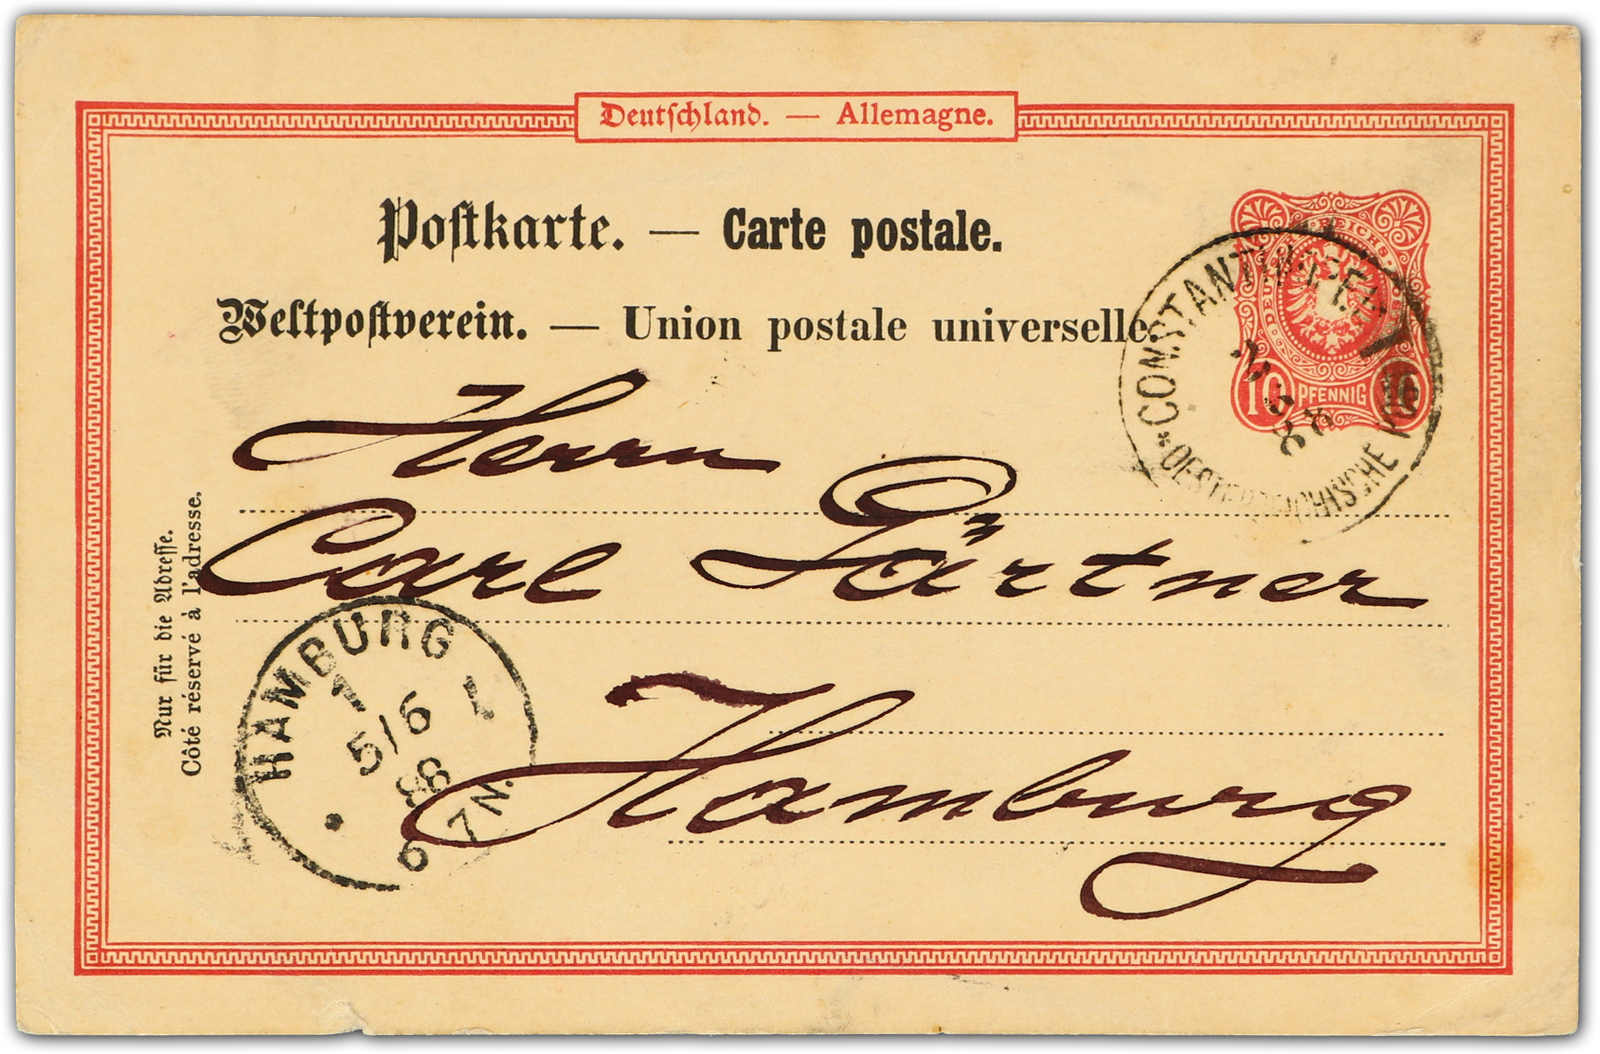 Deutschland. — Allemagne.
Postkarte. — Carte postale.
Weltpostverein. — Union postale universelle.
DEUTSCHE REICHS
10 PFENNIG 10
CONSTANTINOPEL I
88
OESTERREICHISCHE
Herrn
Carl Gärtner
Hamburg
Nur für die Adresse.
Côté réservé à l'adresse.
HAMBURG
1 1
5/6
88
6 7 N.